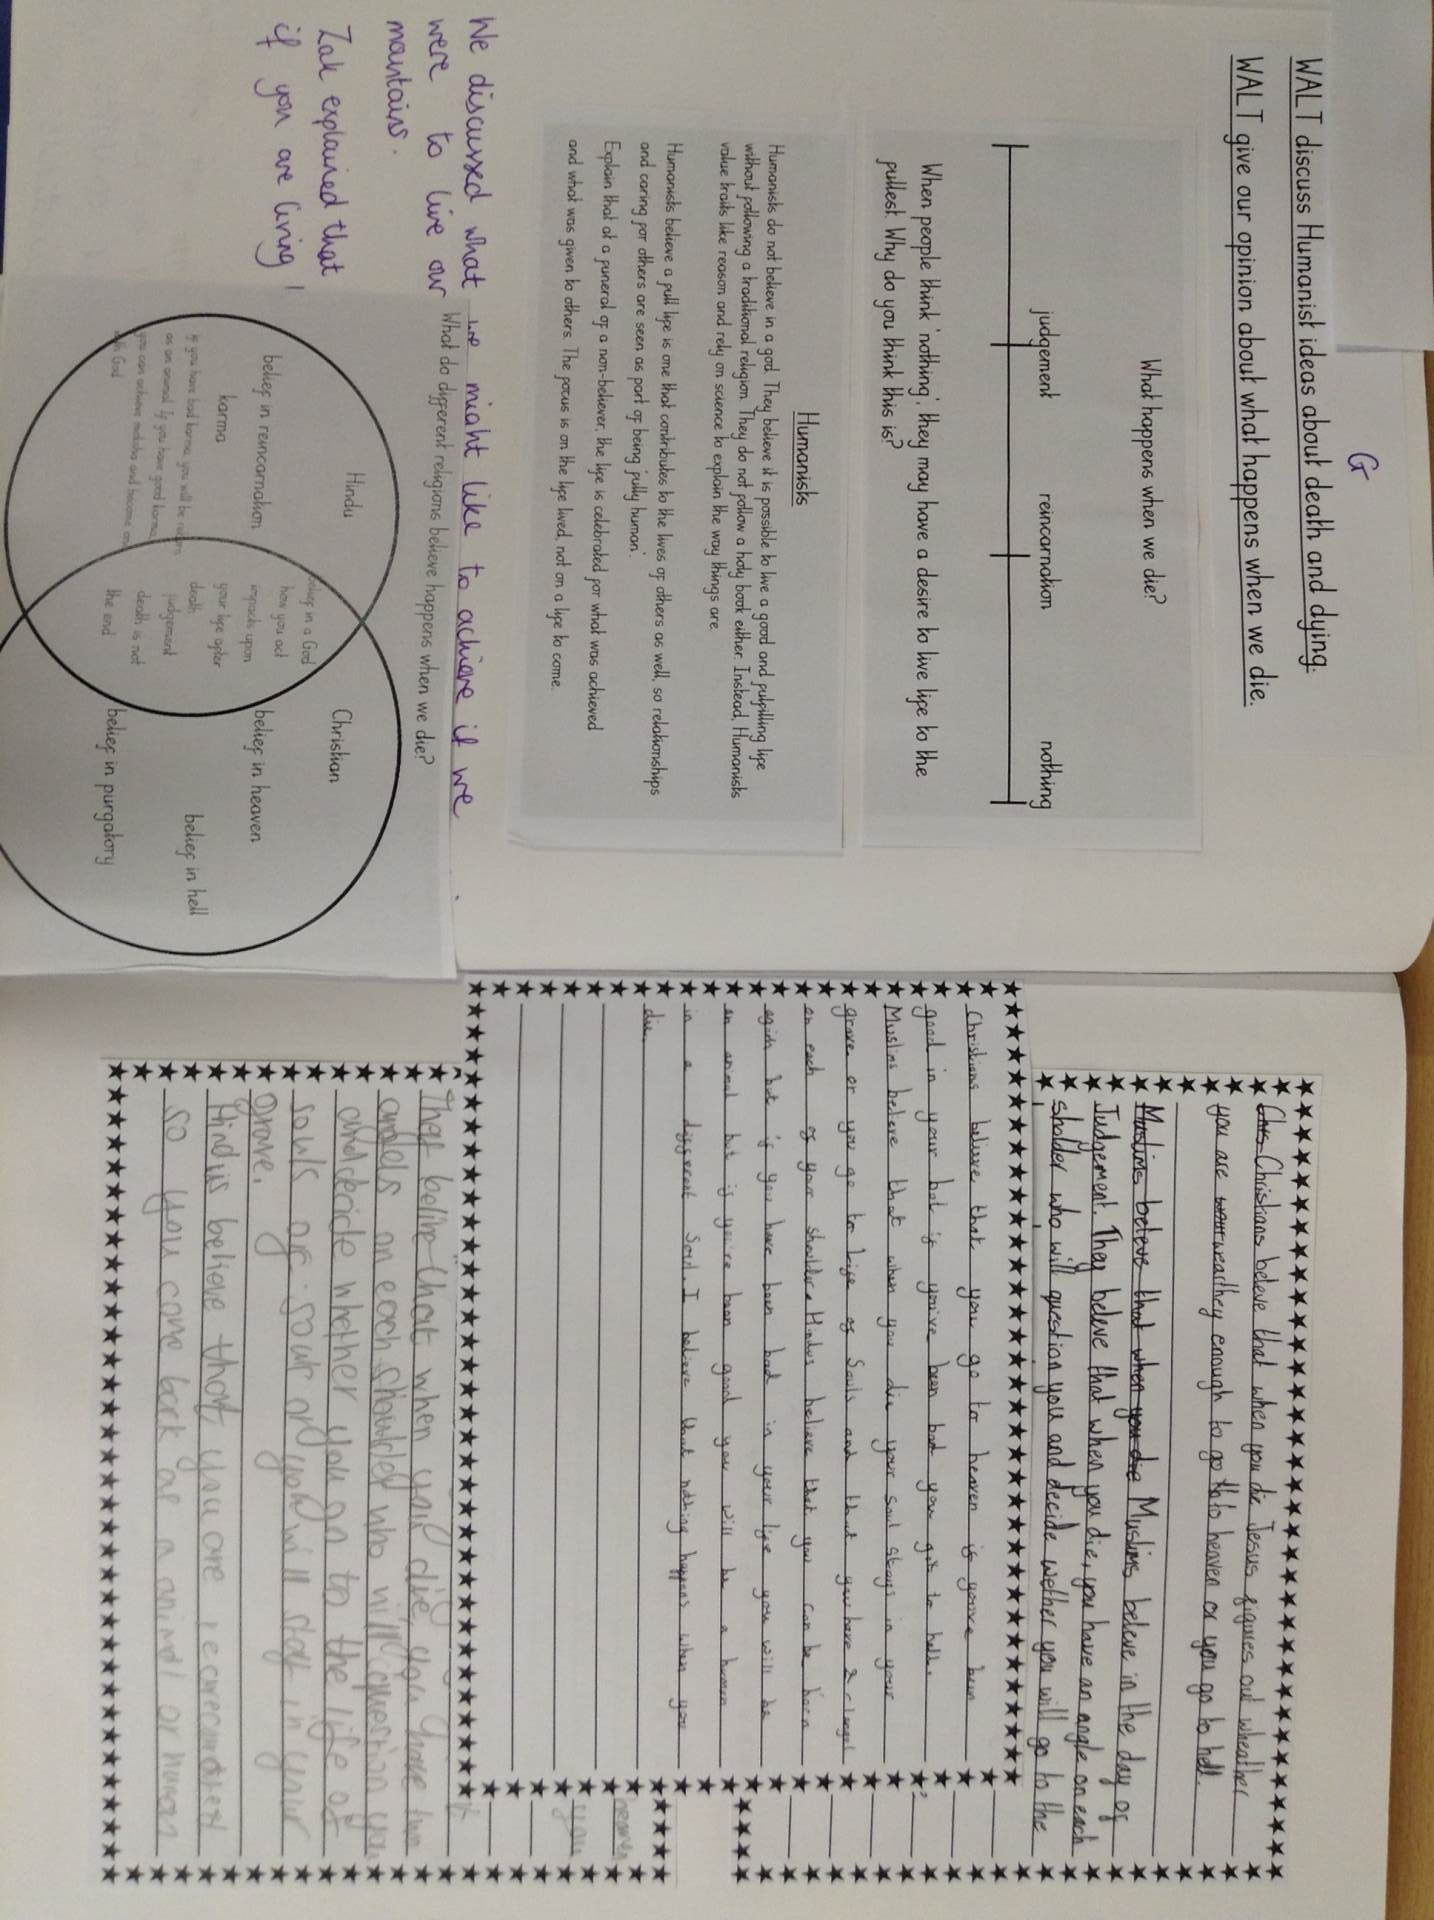 G
WALT discuss Humanist ideas about death and dying.
WALT give our opinion about what happens when we die.
What happens when we die?
judgement reincarnation nothing
When people think 'nothing', they may have a desire to live life to the
fullest. Why do you think this is?
Humanists
Humanists do not believe in a god. They believe it is possible to live a good and fulfilling life
without following a traditional religion. They do not follow a holy book either. Instead, Humanists
value traits like reason and rely on science to explain the way things are.
Humanists believe a full life is one that contributes to the lives of others as well, so relationships
and caring for others are seen as part of being 'fully human'.
Explain that at a funeral of a non-believer, the life is celebrated for what was achieved
and what was given to others. The focus is on the life lived, not on a life to come.
We discussed what we might like to achieve if we
were to live our
mantains.
Zak explained that
if you are living
What do different religions believe happens when we die?
Hindu
belief in reincarnation
karma
if you have bad karma, you will be reborn
as an animal. If you have good karma,
you can achieve moksha and become one
with God
belief in a God
how you act
impacts upon
your life after
death
judgement
death is not
the end
Christian
belief in heaven
belief in hell
belief in purgatory
Chris Christians beleve that when you die Jesus figures out wheather
you are wearthey enough to go to to heaven or you go to hell.
Muslims beleve that when you die Muslims beleve in the day of
Judgement. They beleve that when you die, you have an angle on each
sholder who will question you and decide wether you will go to the
Christians believe that you go to heaven if youve been
good in your but if you've been bad you get to hell.
Muslims believe that when you die your soul stays in your
grave or you go to life of Souls and that you have 2 angel
on each of your shoulder. Hindus believe that you can be born
again but if you have been bad in your life you will be
an animal but if you're been good you will be a human
in a different Soul. I believe that nothing happens when you
die.
heaven
you
They belive that when you die, you have two
angels on each shoulder who will question you
and decide whether you go to the life of
souls of sour or you will stay in your
grave.
Hindus believe that you are
so you come back as a animal or human